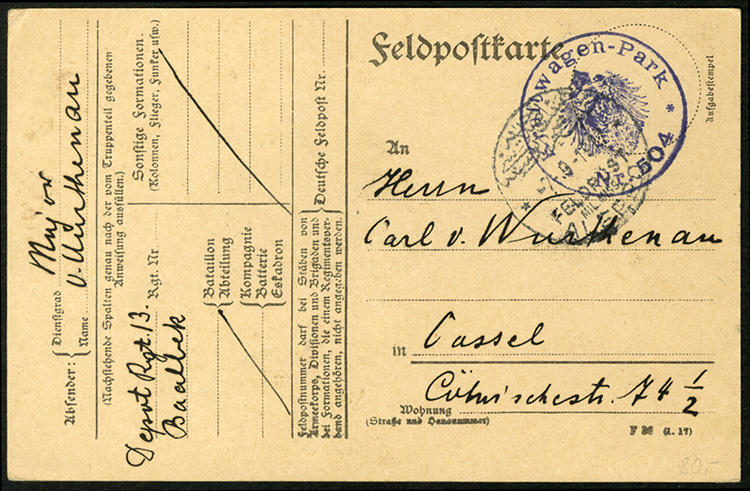 Feldpostkarte
Aufgabestempel
Kraftwagen-Park * Nr. 504 *
FELDPOST
MIL. MISS.
ALEPPO
An
Herrn
Carl v. Wurthenau
in Cassel
Cölnischestr. 74 1/2
Wohnung
(Straße und Hausnummer)
F 36 (1. 17)
80,-
Absender: { Dienstgrad Major
Name v. Wurthenau
(Nachstehende Spalten genau nach der vom Truppenteil gegebenen
Anweisung ausfüllen.)
Sonstige Formationen.
(Kolonnen, Flieger, Funker usw.)
Depot Rgt. 13. Rgt. Nr.
Baalbek
Bataillon
Abteilung
Kompagnie
Batterie
Eskadron
Feldpostnummer darf bei Stäben von
Armeekorps, Divisionen und Brigaden und
bei Formationen, die einem Regimentsver-
band angehören, nicht angegeben werden.
Deutsche Feldpost Nr.